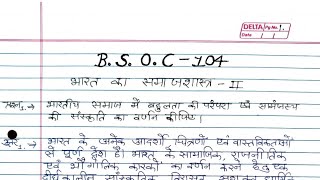 DELTA Pg No. 1.
Date / /
B. S. O. C - 104
भारत का समाजशास्त्र - II
प्रश्न1.→ भारतीय समाज में बहुलता की परंपरा एवं समंजस्य
की संस्कृति का वर्णन कीजिए।
उत्तर→ भारत के अनेक आदर्शो चित्रणों एवं वास्तविकताओं
से पूर्ण देश है। भारत के सामाजिक, राजनीतिक
एवं भौगोलिक कारकों का वर्णन करने हेतु एवं
दीर्घकालीन सांस्कृतिक